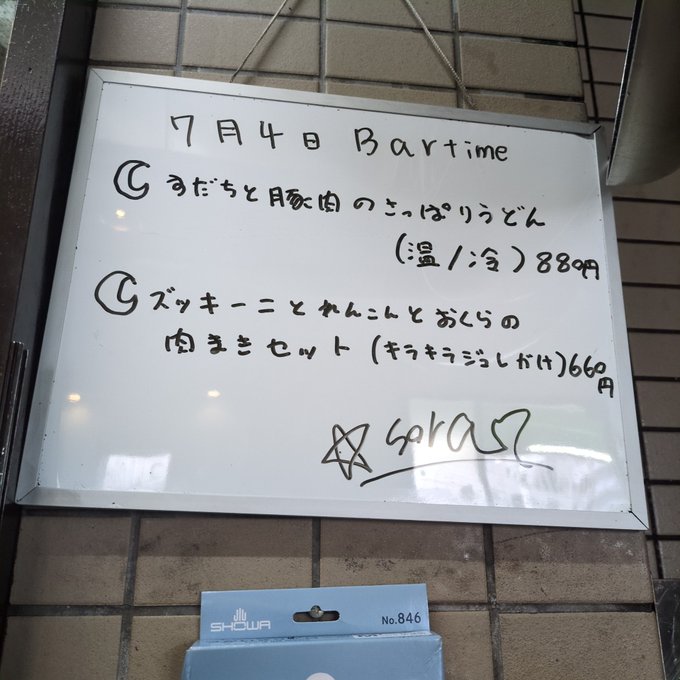 7月4日 Bartime
すだちと豚肉のさっぱりうどん
(温/冷) 880円
ズッキーニとれんこんとおくらの
肉まきセット (キラキラジュレがけ) 660円
SHOWA
No.846